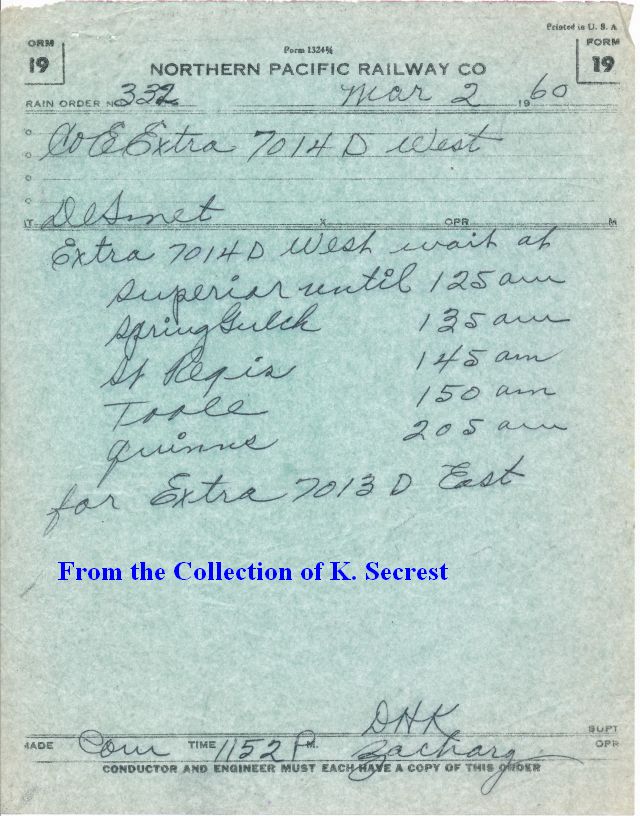 Printed in U. S. A
ORM 19
Form 1324½
FORM 19
NORTHERN PACIFIC RAILWAY CO
RAIN ORDER NO. 332 Mar 2 1960
C&E Extra 7014 D West
T DeSmet X OPR M
Extra 7014 D West wait at
Superior until 125 am
Spring Gulch 135 am
St Regis 145 am
Toole 150 am
Quinns 205 am
for Extra 7013 D East
From the Collection of K. Secrest
DHK
SUPT
MADE Com TIME 1152 P M. Zacharg OPR
CONDUCTOR AND ENGINEER MUST EACH HAVE A COPY OF THIS ORDER